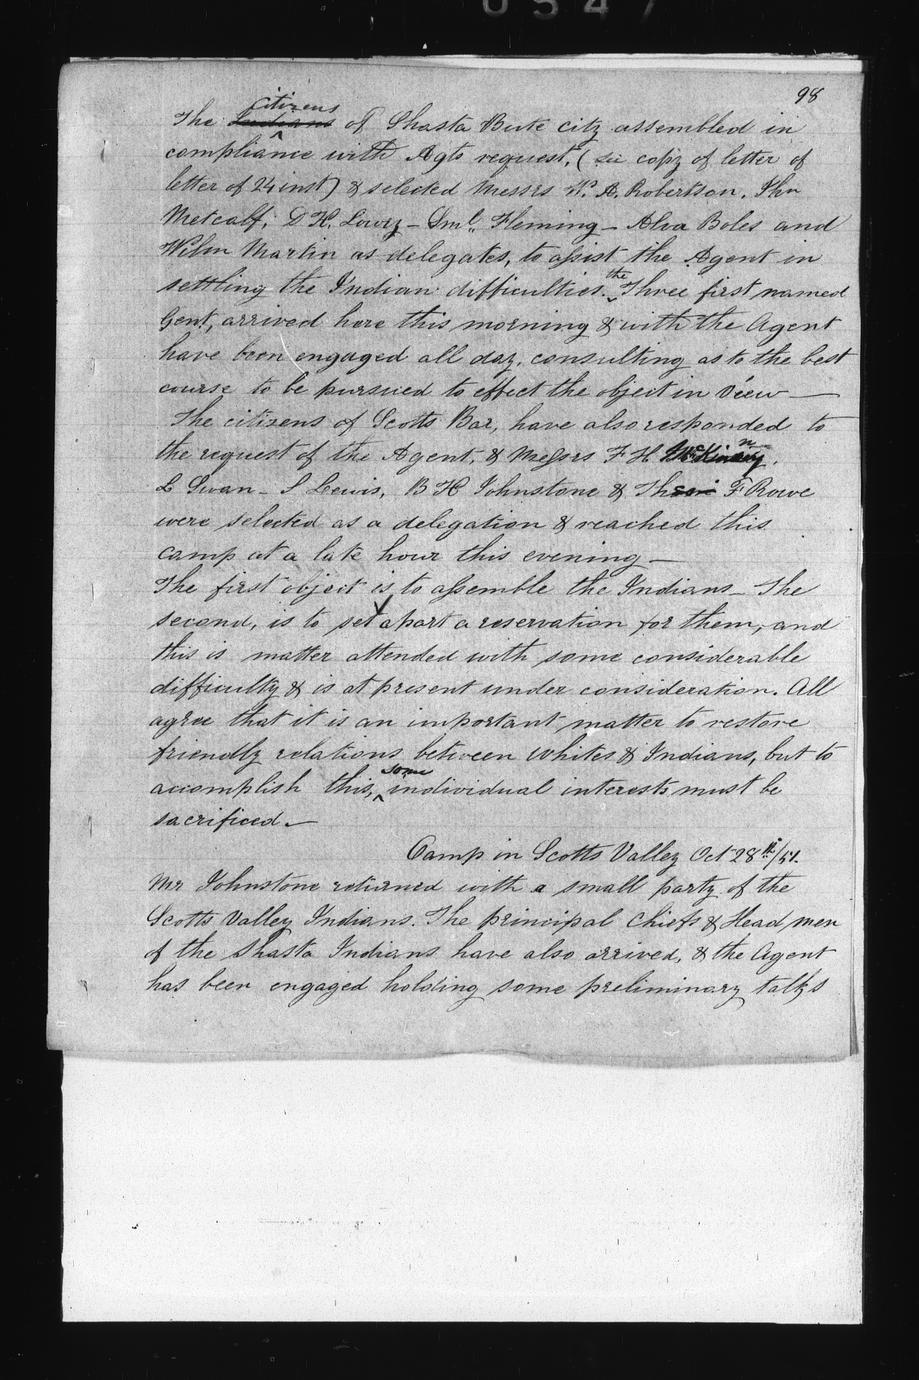 0547
98
The Indians citizens of Shasta Bute city assembled in
compliance with Agts request, (see copy of letter of
letter of 24 inst) & selected Messrs W. A. Robertson, Jhn
Metcalf, D. H. Lowry - Sml. Fleming - Alva Boles and
Wilm Martin as delegates, to assist the Agent in
settling the Indian difficulties. the Three first named
Gent, arrived here this morning & with the Agent
have been engaged all day, consulting as to the best
course to be pursued to effect the object in view —
The citizens of Scotts Bar, have also responded to
the request of the Agent, & Messrs F H McKinney,
L Swan - S Lewis, B H Johnstone & Th F Rowe
were selected as a delegation & reached this
camp at a late hour this evening —
The first object is to assemble the Indians - The
second, is to set apart a reservation for them, and
this is matter attended with some considerable
difficulty & is at present under consideration. All
agree that it is an important matter to restore
friendly relations between whites & Indians, but to
accomplish this, some individual interests must be
sacrificed. —
Camp in Scotts Valley Oct 28th/51.
Mr Johnstone returned with a small party of the
Scotts Valley Indians. The principal Chiefs & Head men
of the Shasta Indians have also arrived, & the Agent
has been engaged holding some preliminary talks